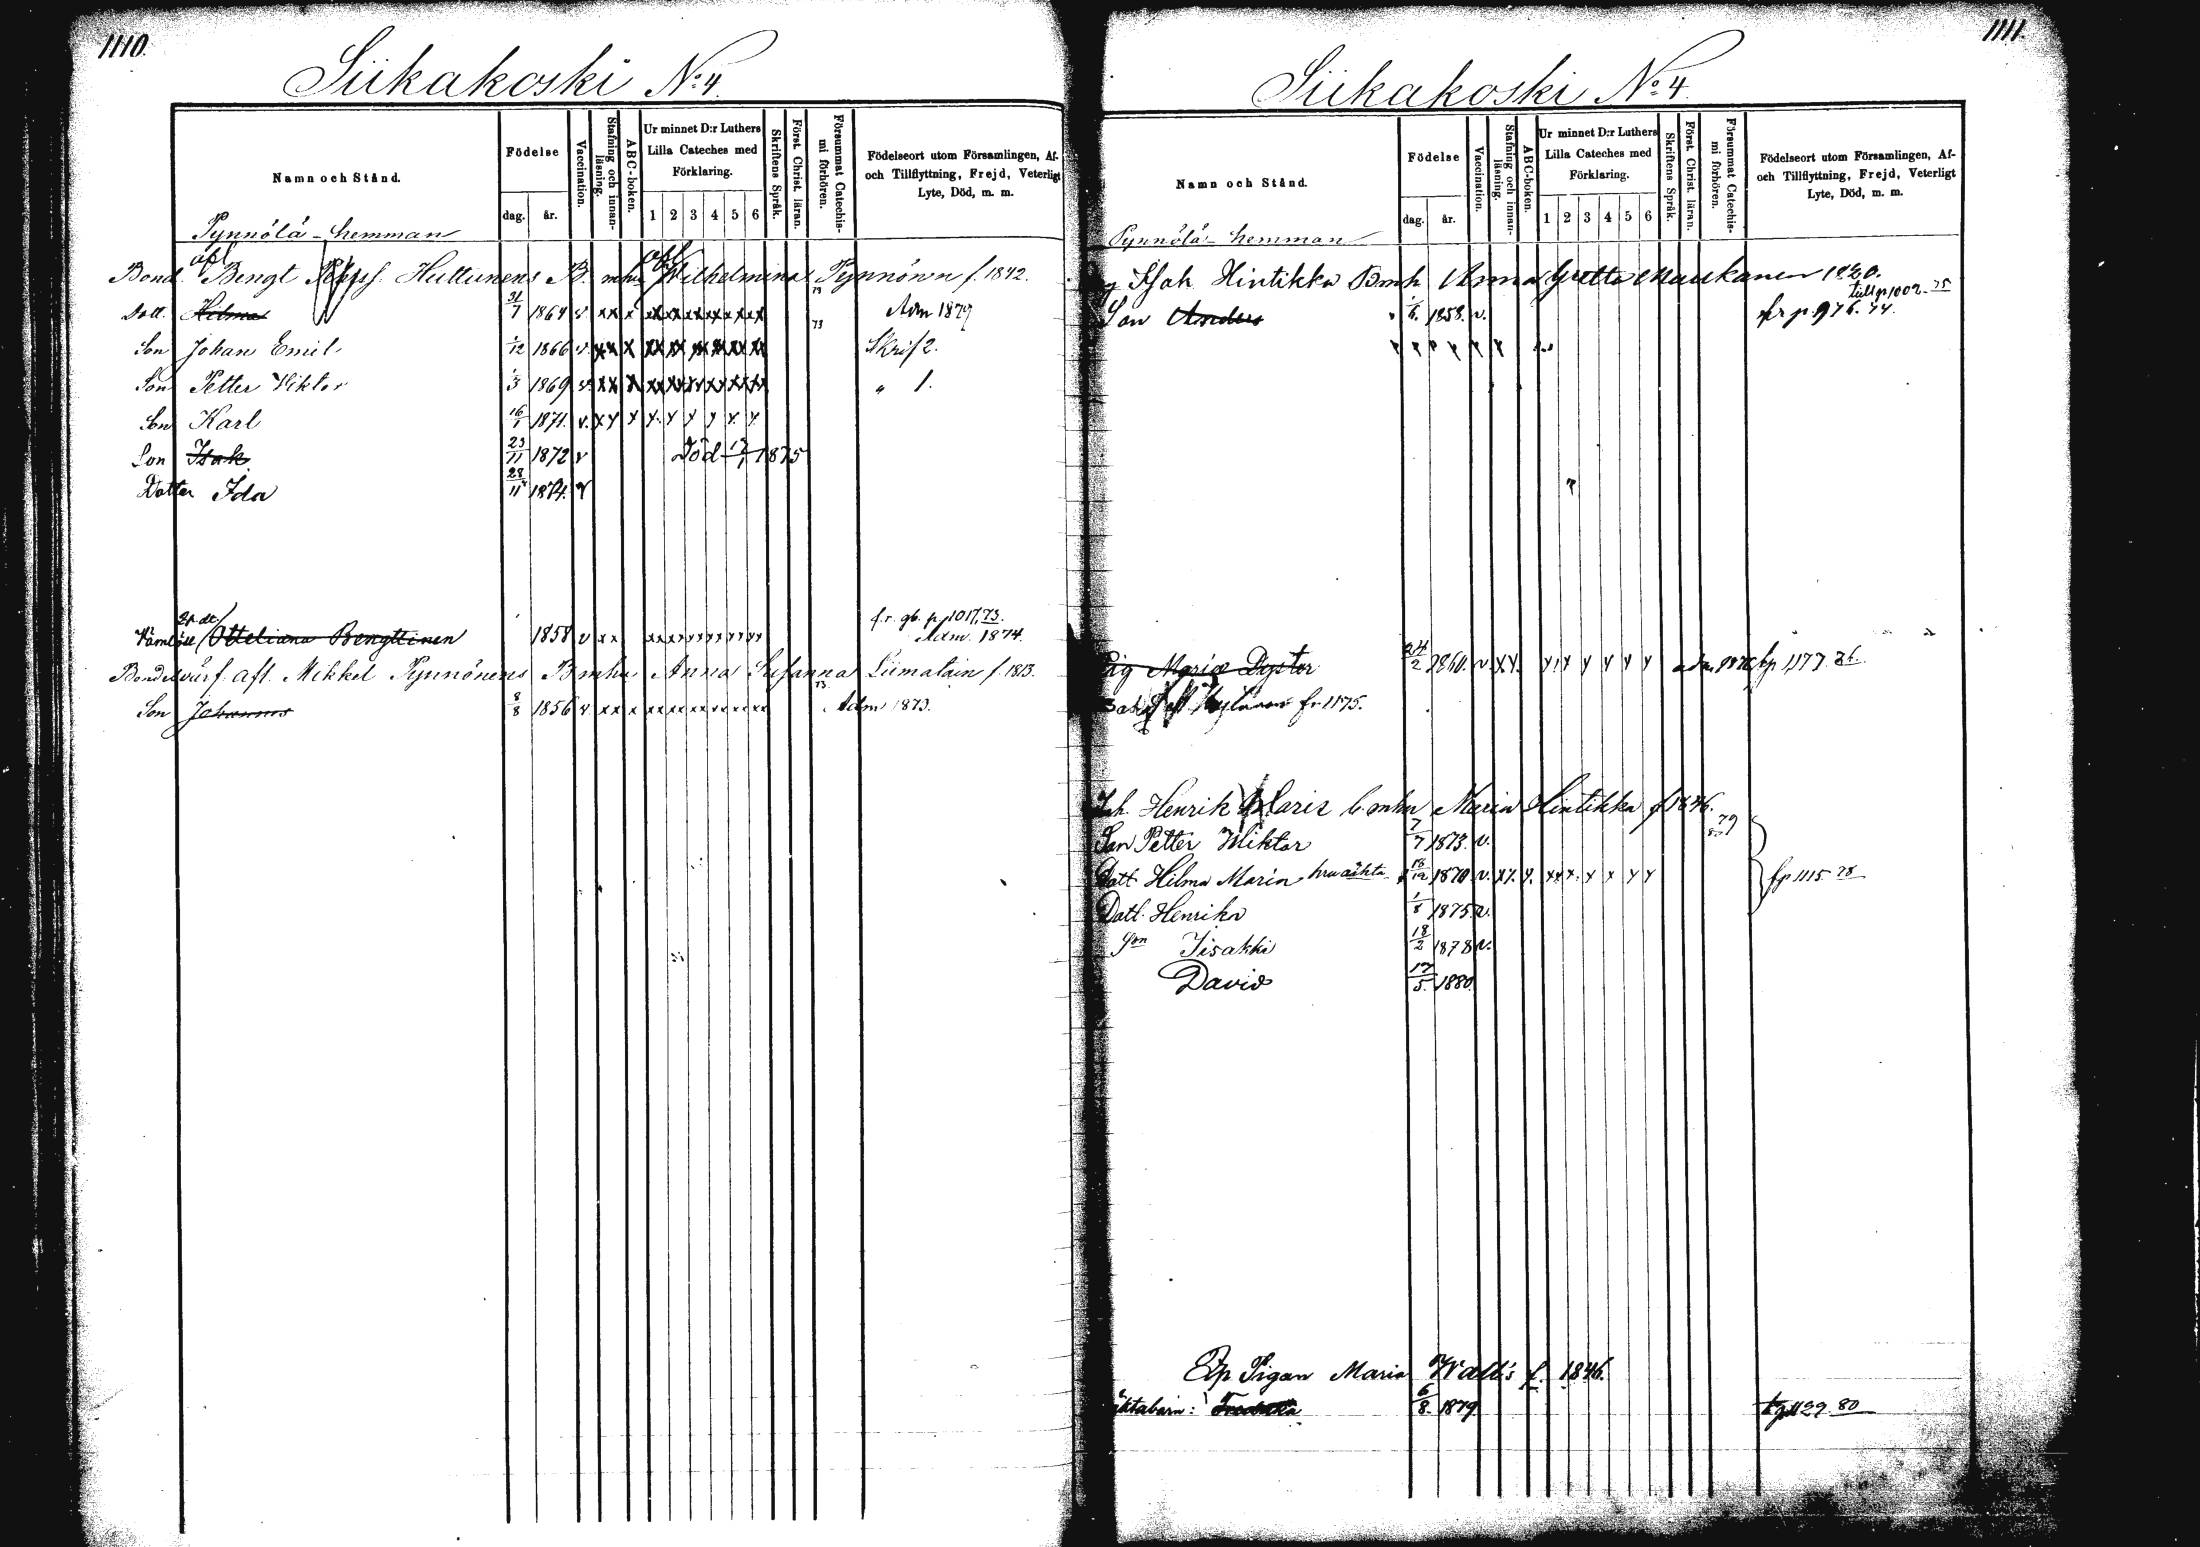 1110.
Siikakoski No 4.
Namn och Stånd.
Födelse
dag. år.
Vaccination.
Stafning och innanläsning.
ABC-boken.
Ur minnet D:r Luthers Lilla Cateches med Förklaring.
1 2 3 4 5 6
Skriftens Språk.
Först. Christ. läran.
Försummat Catechismi förhören.
Födelseort utom Församlingen, Af- och Tillflyttning, Frejd, Veterligt Lyte, Död, m. m.
Pynnölä - hemman
Bond. Bengt Huttunens B. mhu Wilhelmina Pynnönen f. 1842.
Dott. Hilma 31/7 1864 v xx x xx xx xx xx xx xx Adm 1879
Son Johan Emil 1/12 1866 v. xx x xx xx xx xx xx xx 73 Skrif 2.
Son Petter Viktor 1/3 1869 v. xx x xx xx xx xx xx xx " 1.
Son Karl 16/1 1871. v. x x x x x x x x x
Son Isak 23/11 1872 v Död 1875
Dotter Ida 28/11 1874. v
Otteliana Bengttinen 1858 v xx xx xx xx xx xx xx f.r. gb. p. 1017, 73.
Adm. 1874.
Mikkel Pynnönens Bmhu Anna Susanna Liimatain f. 1813.
Son Johannes 8/8 1856 v. xx x xx xx xx xx xx xx 73 Adm 1873.
1111.
Siikakoski No 4.
Namn och Stånd.
Födelse
dag. år.
Vaccination.
Stafning och innanläsning.
ABC-boken.
Ur minnet D:r Luthers Lilla Cateches med Förklaring.
1 2 3 4 5 6
Skriftens Språk.
Först. Christ. läran.
Försummat Catechismi förhören.
Födelseort utom Församlingen, Af- och Tillflyttning, Frejd, Veterligt Lyte, Död, m. m.
Pynnölä - hemman
Hintikka Bmh Anna Gretta Maukanen 1820.
till p 1002 75
Son Anders 1858. v. fr p 976. 74.
Pig Maria Dyster 24/2 1860. v. xx. x x x x x x fp 1177 76.
fr 1175.
Joh. Henrik Maria Hintikka f 1846.
Son Petter Wiktor 7/7 1873. v. 79
Dott Hilma Maria 18/12 1870 v. xx. x. xx x. x x x x fp 1115 78
Dott. Henrika 1/8 1875. v.
Son Iisakki 18/2 1878 v.
David 17/5. 1880.
Pigan Maria f. 1846.
Fredrika 6/8. 1879. 1129. 80